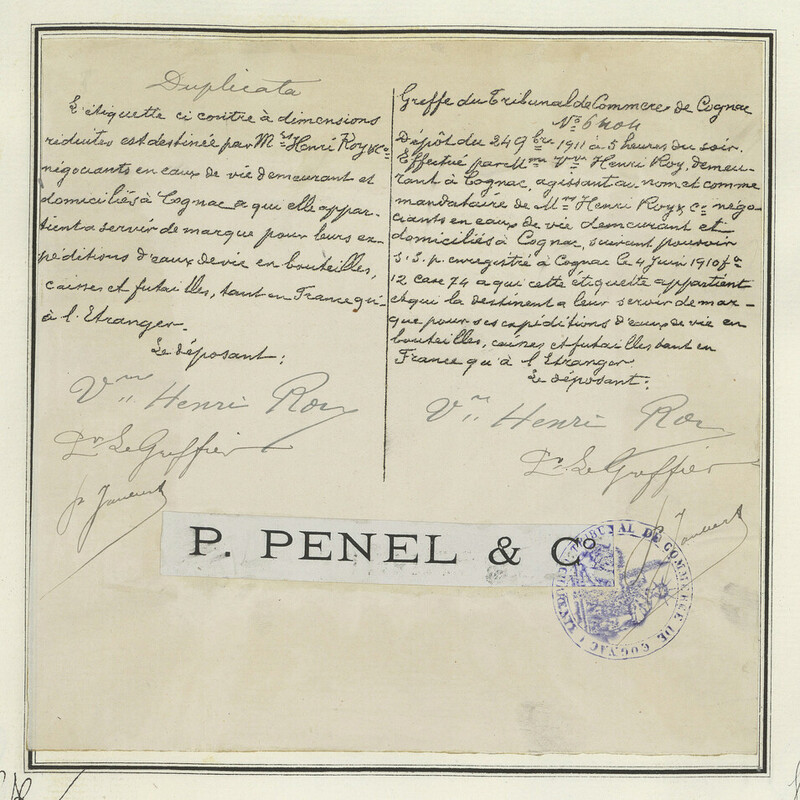 Duplicata
L'étiquette ci contre à dimensions
réduites est destinée par Mrs Henri Roy & Co
négociants en eaux de vie demeurant et
domiciliés à Cognac a qui elle appar-
tient a servir de marque pour leurs ex-
péditions d'eaux de vie en bouteilles,
caisses et futailles, tant en France qu'
à l'Etranger.
Le déposant:
Vve Henri Roy
Pr Le Greffier
Greffe du Tribunal de Commerce de Cognac
No 6404
Dépôt du 24 9bre 1911 à 5 heures du soir.
Effectué par Mme Vve Henri Roy, demeu-
rant à Cognac, agissant au nom et comme
mandataire de Mrs Henri Roy & Co négo-
ciants en eaux de vie demeurant et
domiciliés à Cognac, suivant pouvoir
S.S.p. enregistré à Cognac le 4 Juin 1910 fo
12 case 74 a qui cette étiquette appartient
et qui la destinent a leur servir de mar-
que pour ses expéditions d'eaux de vie en
bouteilles, caisses et futailles tant en
France qu'à l'Etranger
Le déposant:
Vve Henri Roy
Pr Le Greffier
P. PENEL & Co
TRIBUNAL DE COMMERCE DE COGNAC